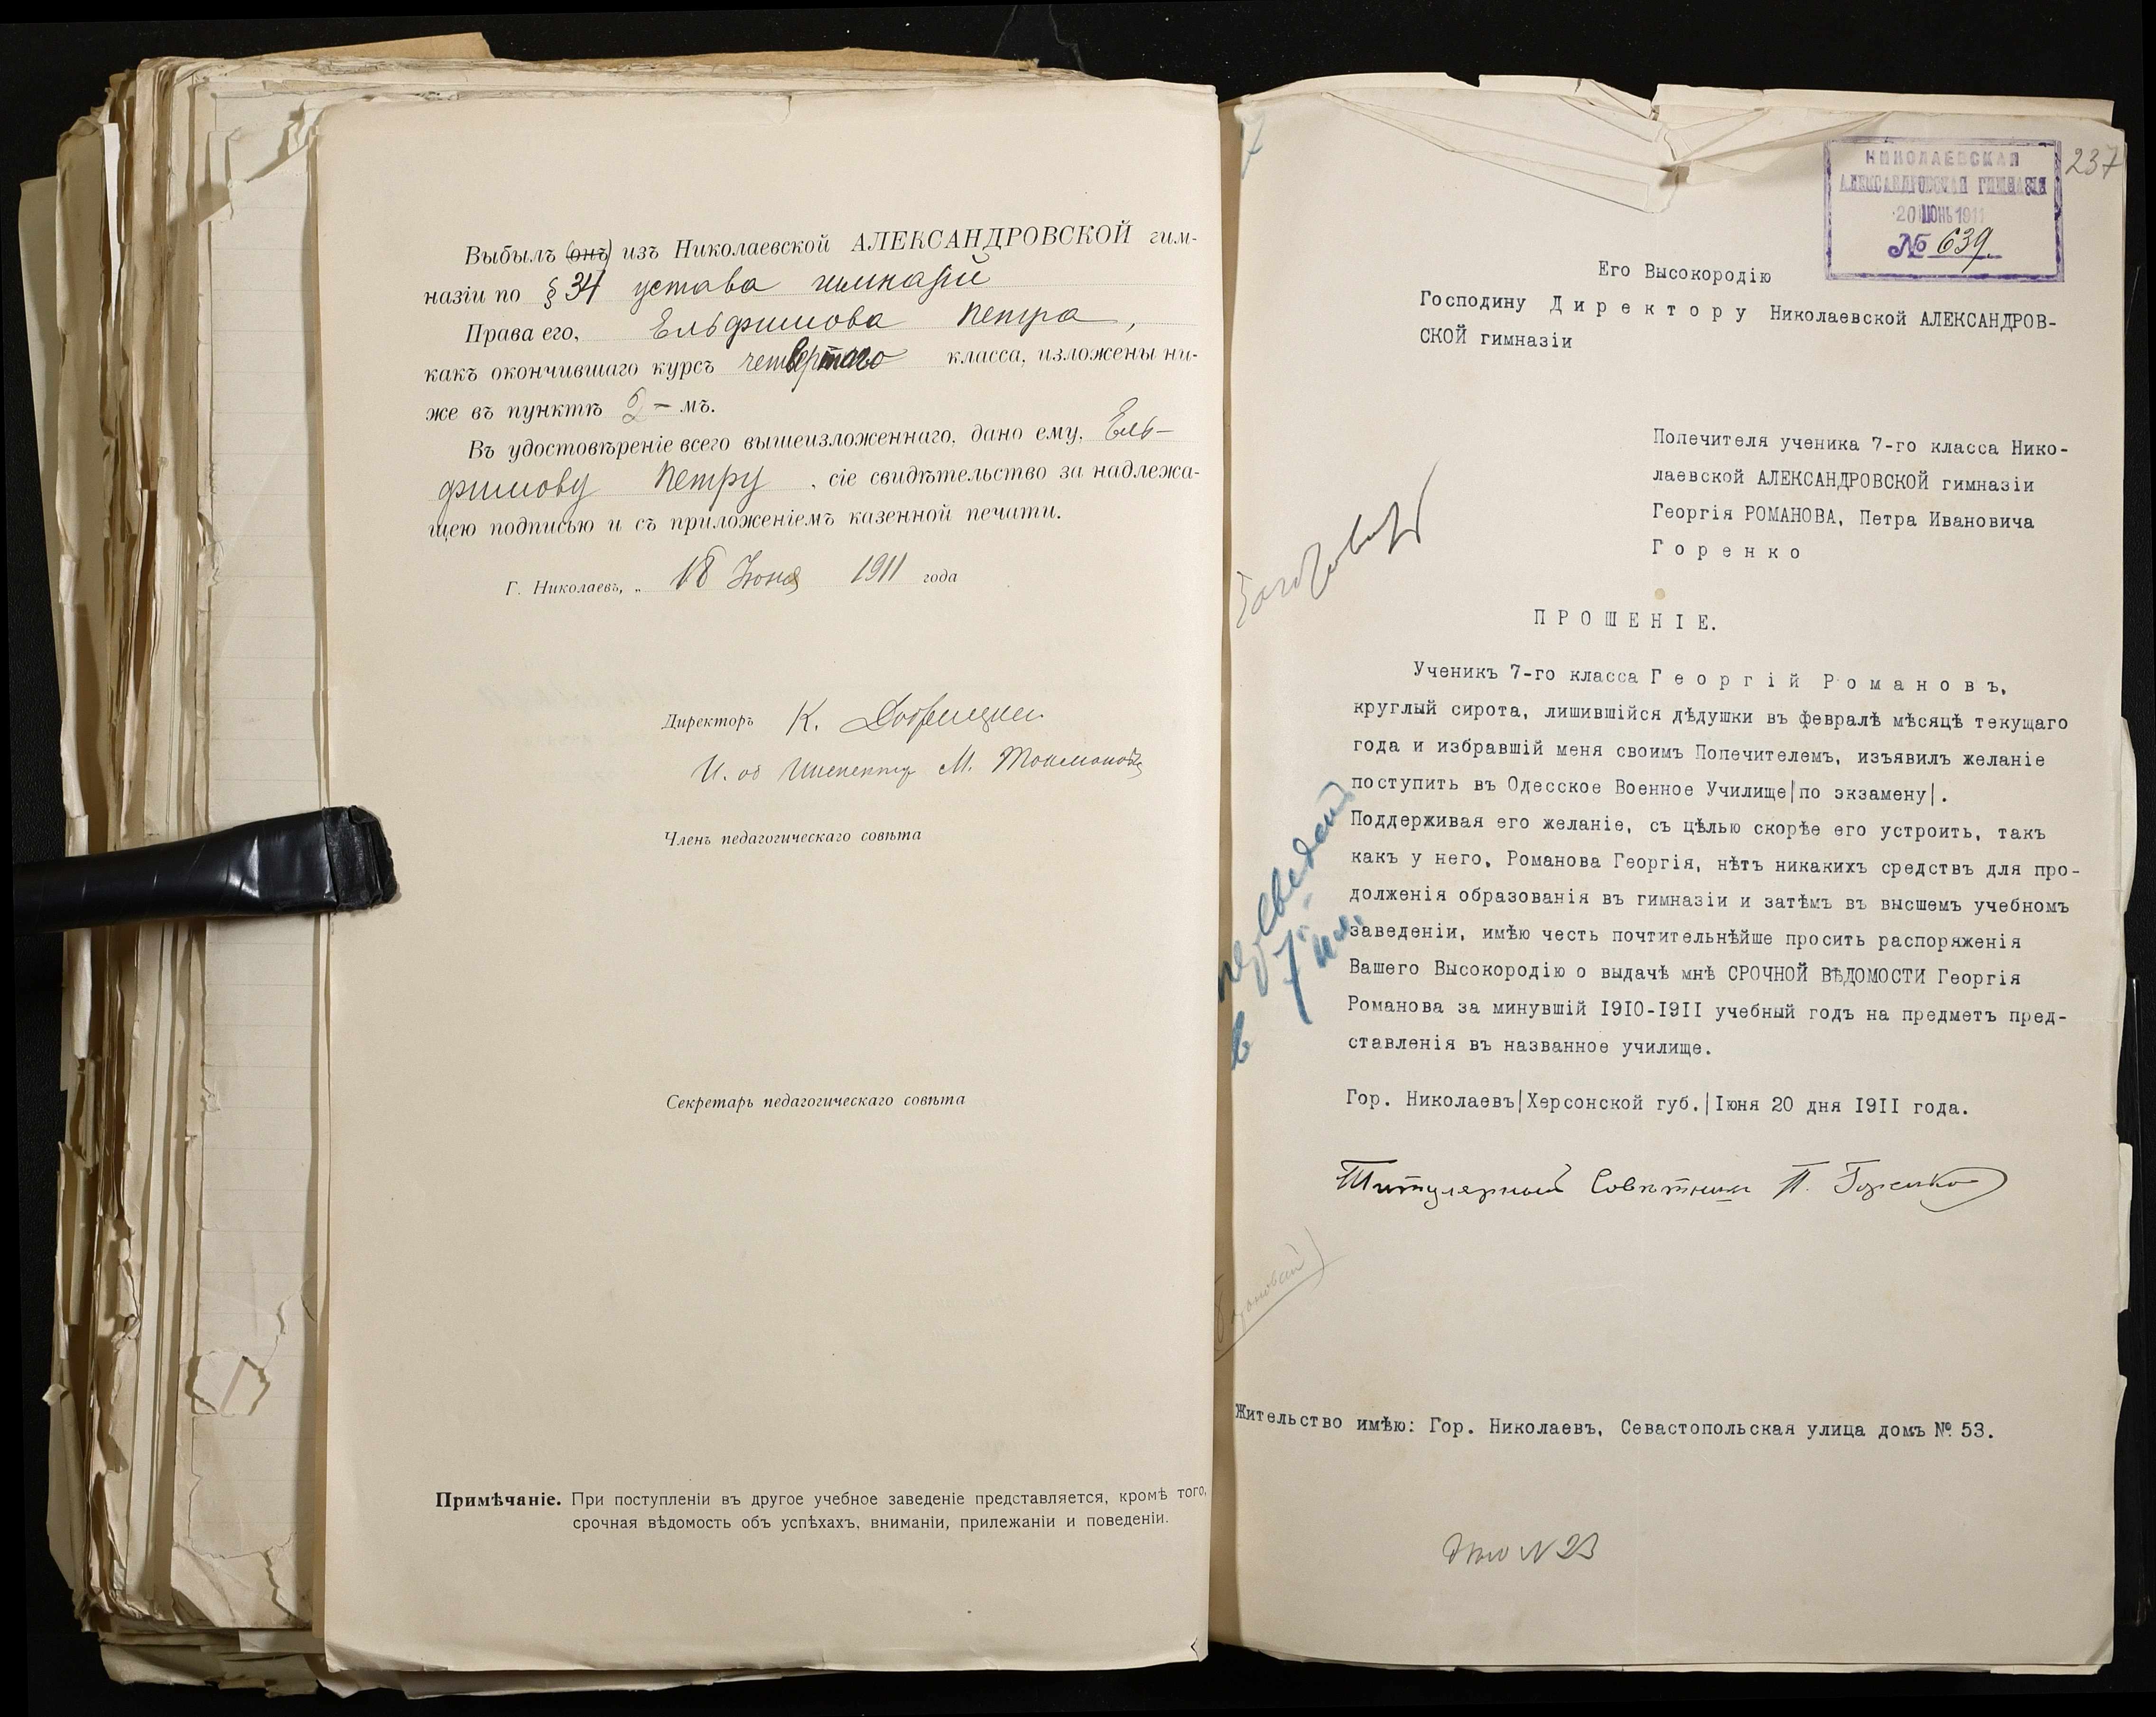 Выбылъ (онъ) изъ Николаевской АЛЕКСАНДРОВСКОЙ гим-
назіи по § 34 устава гимназій
Права его, Ельфимова Петра,
какъ окончившаго курсъ четвертаго класса, изложены ни-
же въ пунктѣ 2-мъ.
Въ удостовѣреніе всего вышеизложеннаго, дано ему, Ель-
фимову Петру, сіе свидѣтельство за надлежа-
щею подписью и съ приложеніемъ казенной печати.
Г. Николаевъ, „ 18 Іюня 1911 года
Директоръ К.
И. об Инспектор М.
Членъ педагогическаго совѣта
Секретарь педагогическаго совѣта
Примѣчаніе. При поступленіи въ другое учебное заведеніе представляется, кромѣ того,
срочная вѣдомость объ успѣхахъ, вниманіи, прилежаніи и поведеніи.
237
НИКОЛАЕВСКАЯ
АЛЕКСАНДРОВСКАЯ ГИМНАЗІЯ
20 ІЮНЬ 1911
№ 639.
Его Высокородію
Господину Д и р е к т о р у Николаевской АЛЕКСАНДРОВ-
СКОЙ гимназіи
Попечителя ученика 7-го класса Нико-
лаевской АЛЕКСАНДРОВСКОЙ гимназіи
Георгія РОМАНОВА, Петра Ивановича
Г о р е н к о
П Р О Ш Е Н І Е.
Ученикъ 7-го класса Г е о р г і й Р о м а н о в ъ,
круглый сирота, лишившійся дѣдушки въ февралѣ мѣсяцѣ текущаго
года и избравшій меня своимъ Попечителемъ, изъявилъ желаніе
поступить въ Одесское Военное Училище|по экзамену|.
Поддерживая его желаніе, съ цѣлью скорѣе его устроить, такъ
какъ у него, Романова Георгія, нѣтъ никакихъ средствъ для про-
долженія образованія въ гимназіи и затѣмъ въ высшемъ учебномъ
заведеніи, имѣю честь почтительнѣйше просить распоряженія
Вашего Высокородію о выдачѣ мнѣ СРОЧНОЙ ВѢДОМОСТИ Георгія
Романова за минувшій I9I0-I9II учебный годъ на предметъ пред-
ставленія въ названное училище.
Гор. Николаевъ|Херсонской губ.|Іюня 20 дня I9II года.
Титулярный Совѣтникъ П. Горенко
Жительство имѣю: Гор. Николаевъ, Севастопольская улица домъ № 53.
N 23